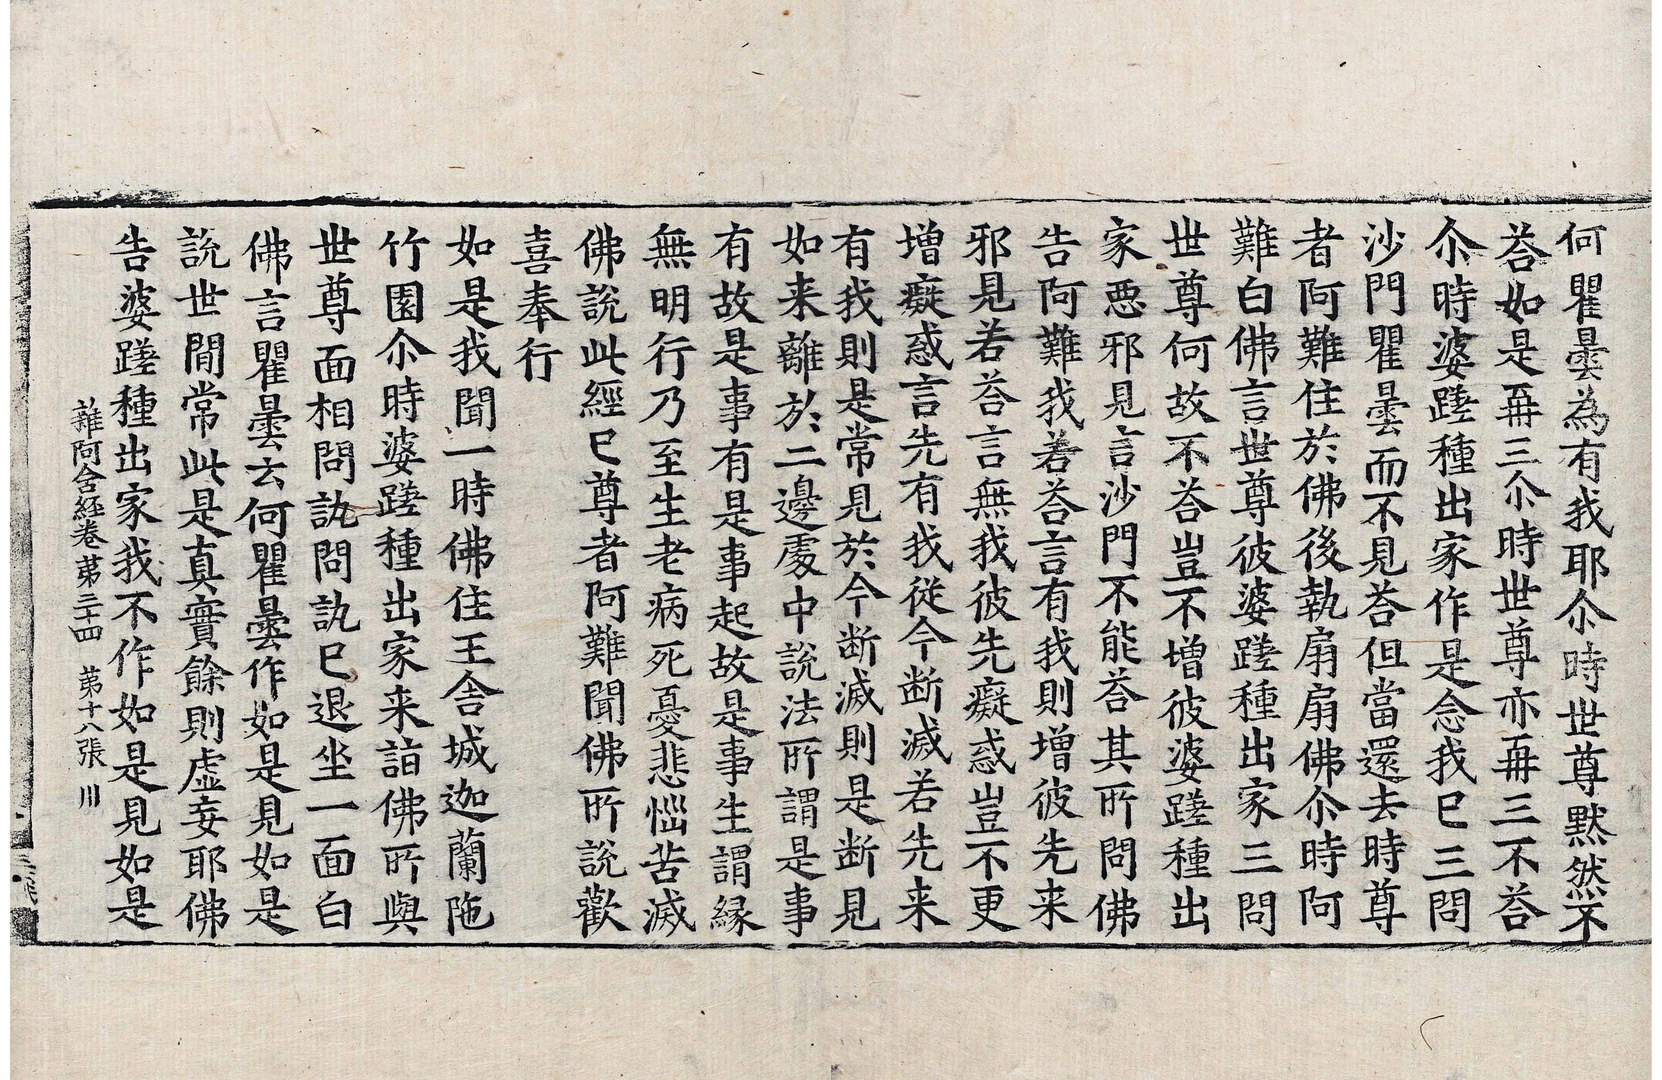 何瞿曇為有我耶尒時世尊黙然不
荅如是再三尒時世尊亦再三不荅
尒時婆蹉種出家作是念我已三問
沙門瞿曇而不見荅但當還去時尊
者阿難住於佛後執扇扇佛尒時阿
難白佛言世尊彼婆蹉種出家三問
世尊何故不荅豈不增彼婆蹉種出
家惡邪見言沙門不能荅其所問佛
告阿難我若荅言有我則增彼先来
邪見若荅言無我彼先癡惑豈不更
增癡惑言先有我從今断滅若先来
有我則是常見於今断滅則是断見
如来離於二邊處中說法所謂是事
有故是事有是事起故是事生謂縁
無明行乃至生老病死憂悲惱苦滅
佛說此經已尊者阿難聞佛所說歡
喜奉行
如是我聞一時佛住王舍城迦蘭陁
竹園尒時婆蹉種出家来詣佛所與
世尊面相問訊問訊已退坐一面白
佛言瞿曇云何瞿曇作如是見如是
說世間常此是真實餘則虛妄耶佛
告婆蹉種出家我不作如是見如是
雜阿含経卷苐三十四 苐十八張 川